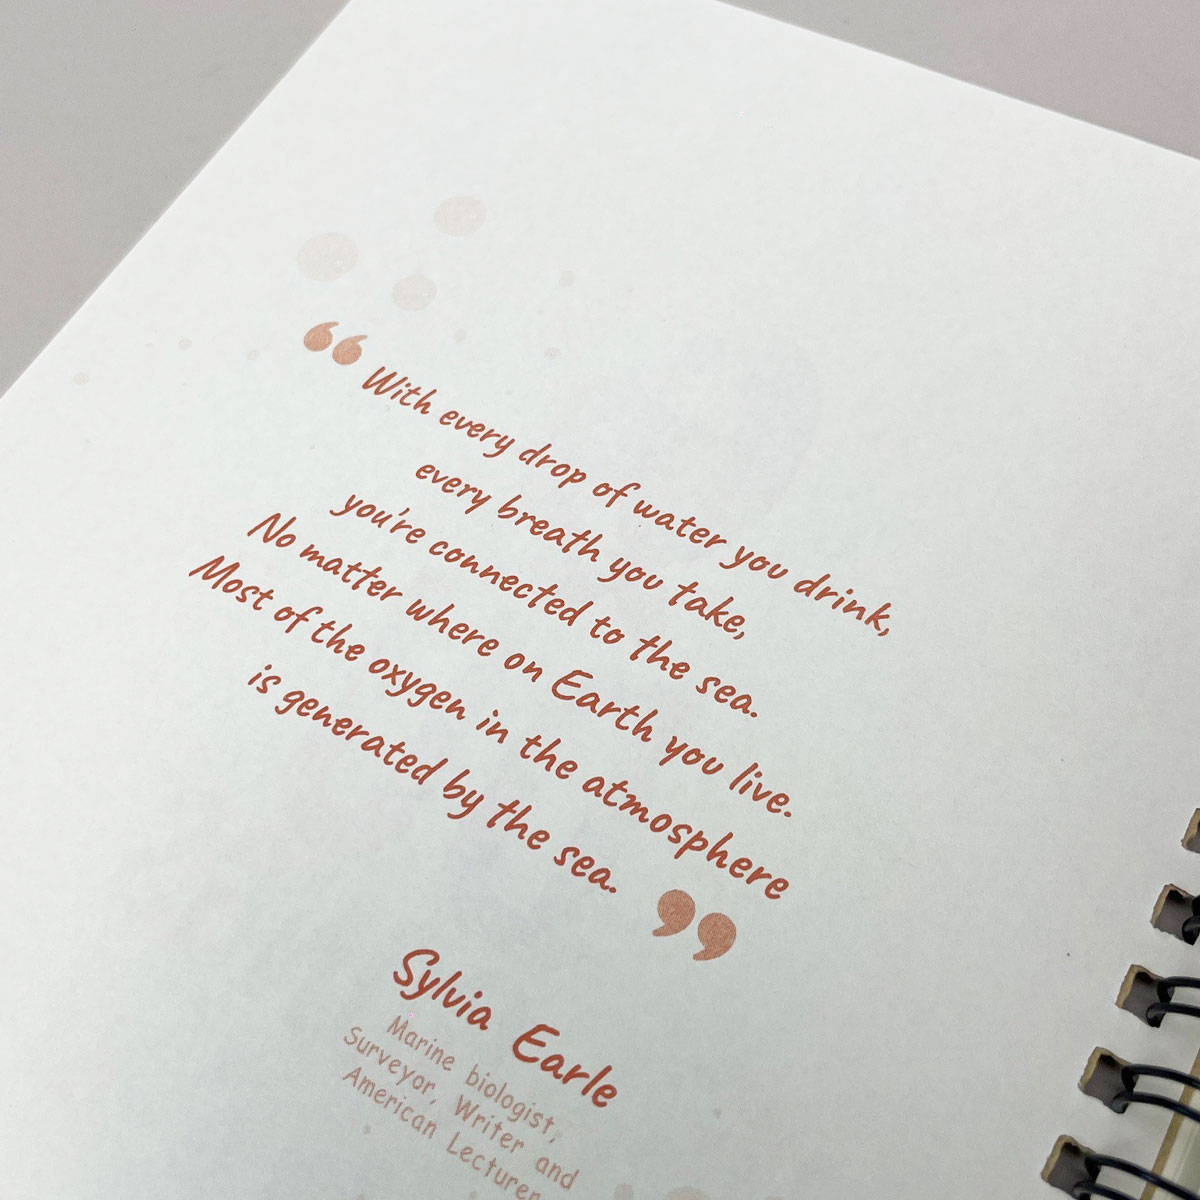 “ With every drop of water you drink,
every breath you take,
you're connected to the sea.
No matter where on Earth you live.
Most of the oxygen in the atmosphere
is generated by the sea. ”
Sylvia Earle
Marine biologist,
Surveyor, Writer and
American Lecturer